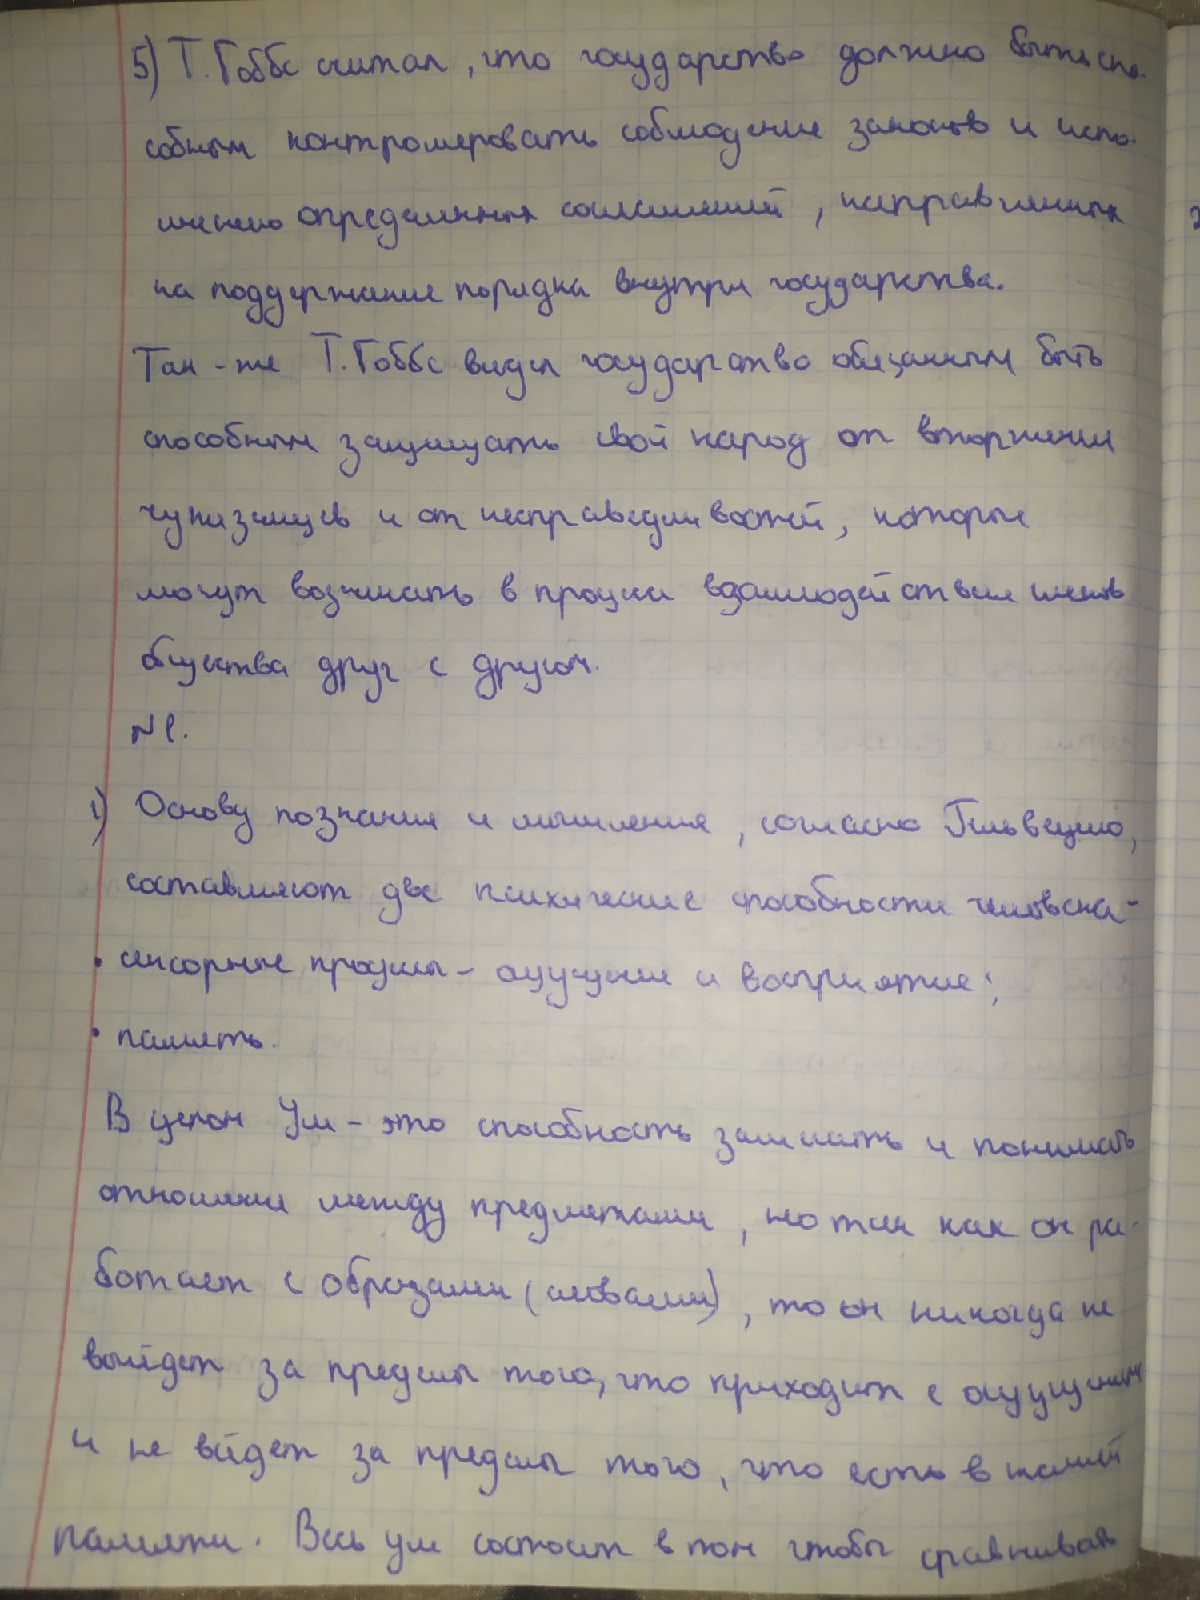 5) Т. Гоббс считал, что государство должно быть спо-
собным контролировать соблюдение законов и испо-
лнению определенных соглашений, направленных
на поддержание порядка внутри государства.
Так-же Т. Гоббс видел государство обязанным быть
способным защищать свой народ от вторжения
чужиземцев и от несправедливостей, которые
могут возникать в процессе взаимодействия членов
общества друг с другом.
№ 1.
1) Основу познания и мышления, согласно Гельвецию,
составляют две психические способности человека -
• сенсорные процессы - ощущение и восприятие;
• память.
В целом Ум - это способность замечать и понимать
отношения между предметами, но так как он ра-
ботает с образами (словами), то он никогда не
выйдет за пределы того, что приходит с ощущениями
и не вйдет за пределы того, что есть в нашей
памяти. Весь ум состоит в том чтобы сравнивать